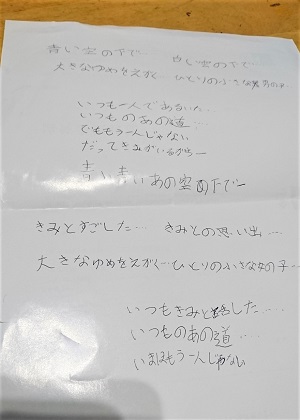 青い空の下で… 白い空の下で…
大きなゆめをえがく… ひとりの小さな男の子…
いつも一人であるいた…
いつものあの道…
でももう一人じゃない
だってきみがいるから―
青い青いあの空の下で―
きみとすごした… きみとの思い出…
大きなゆめをえがく…ひとりの小さな女の子…
いつもきみと話した…
いつものあの道…
いまはもう一人じゃない